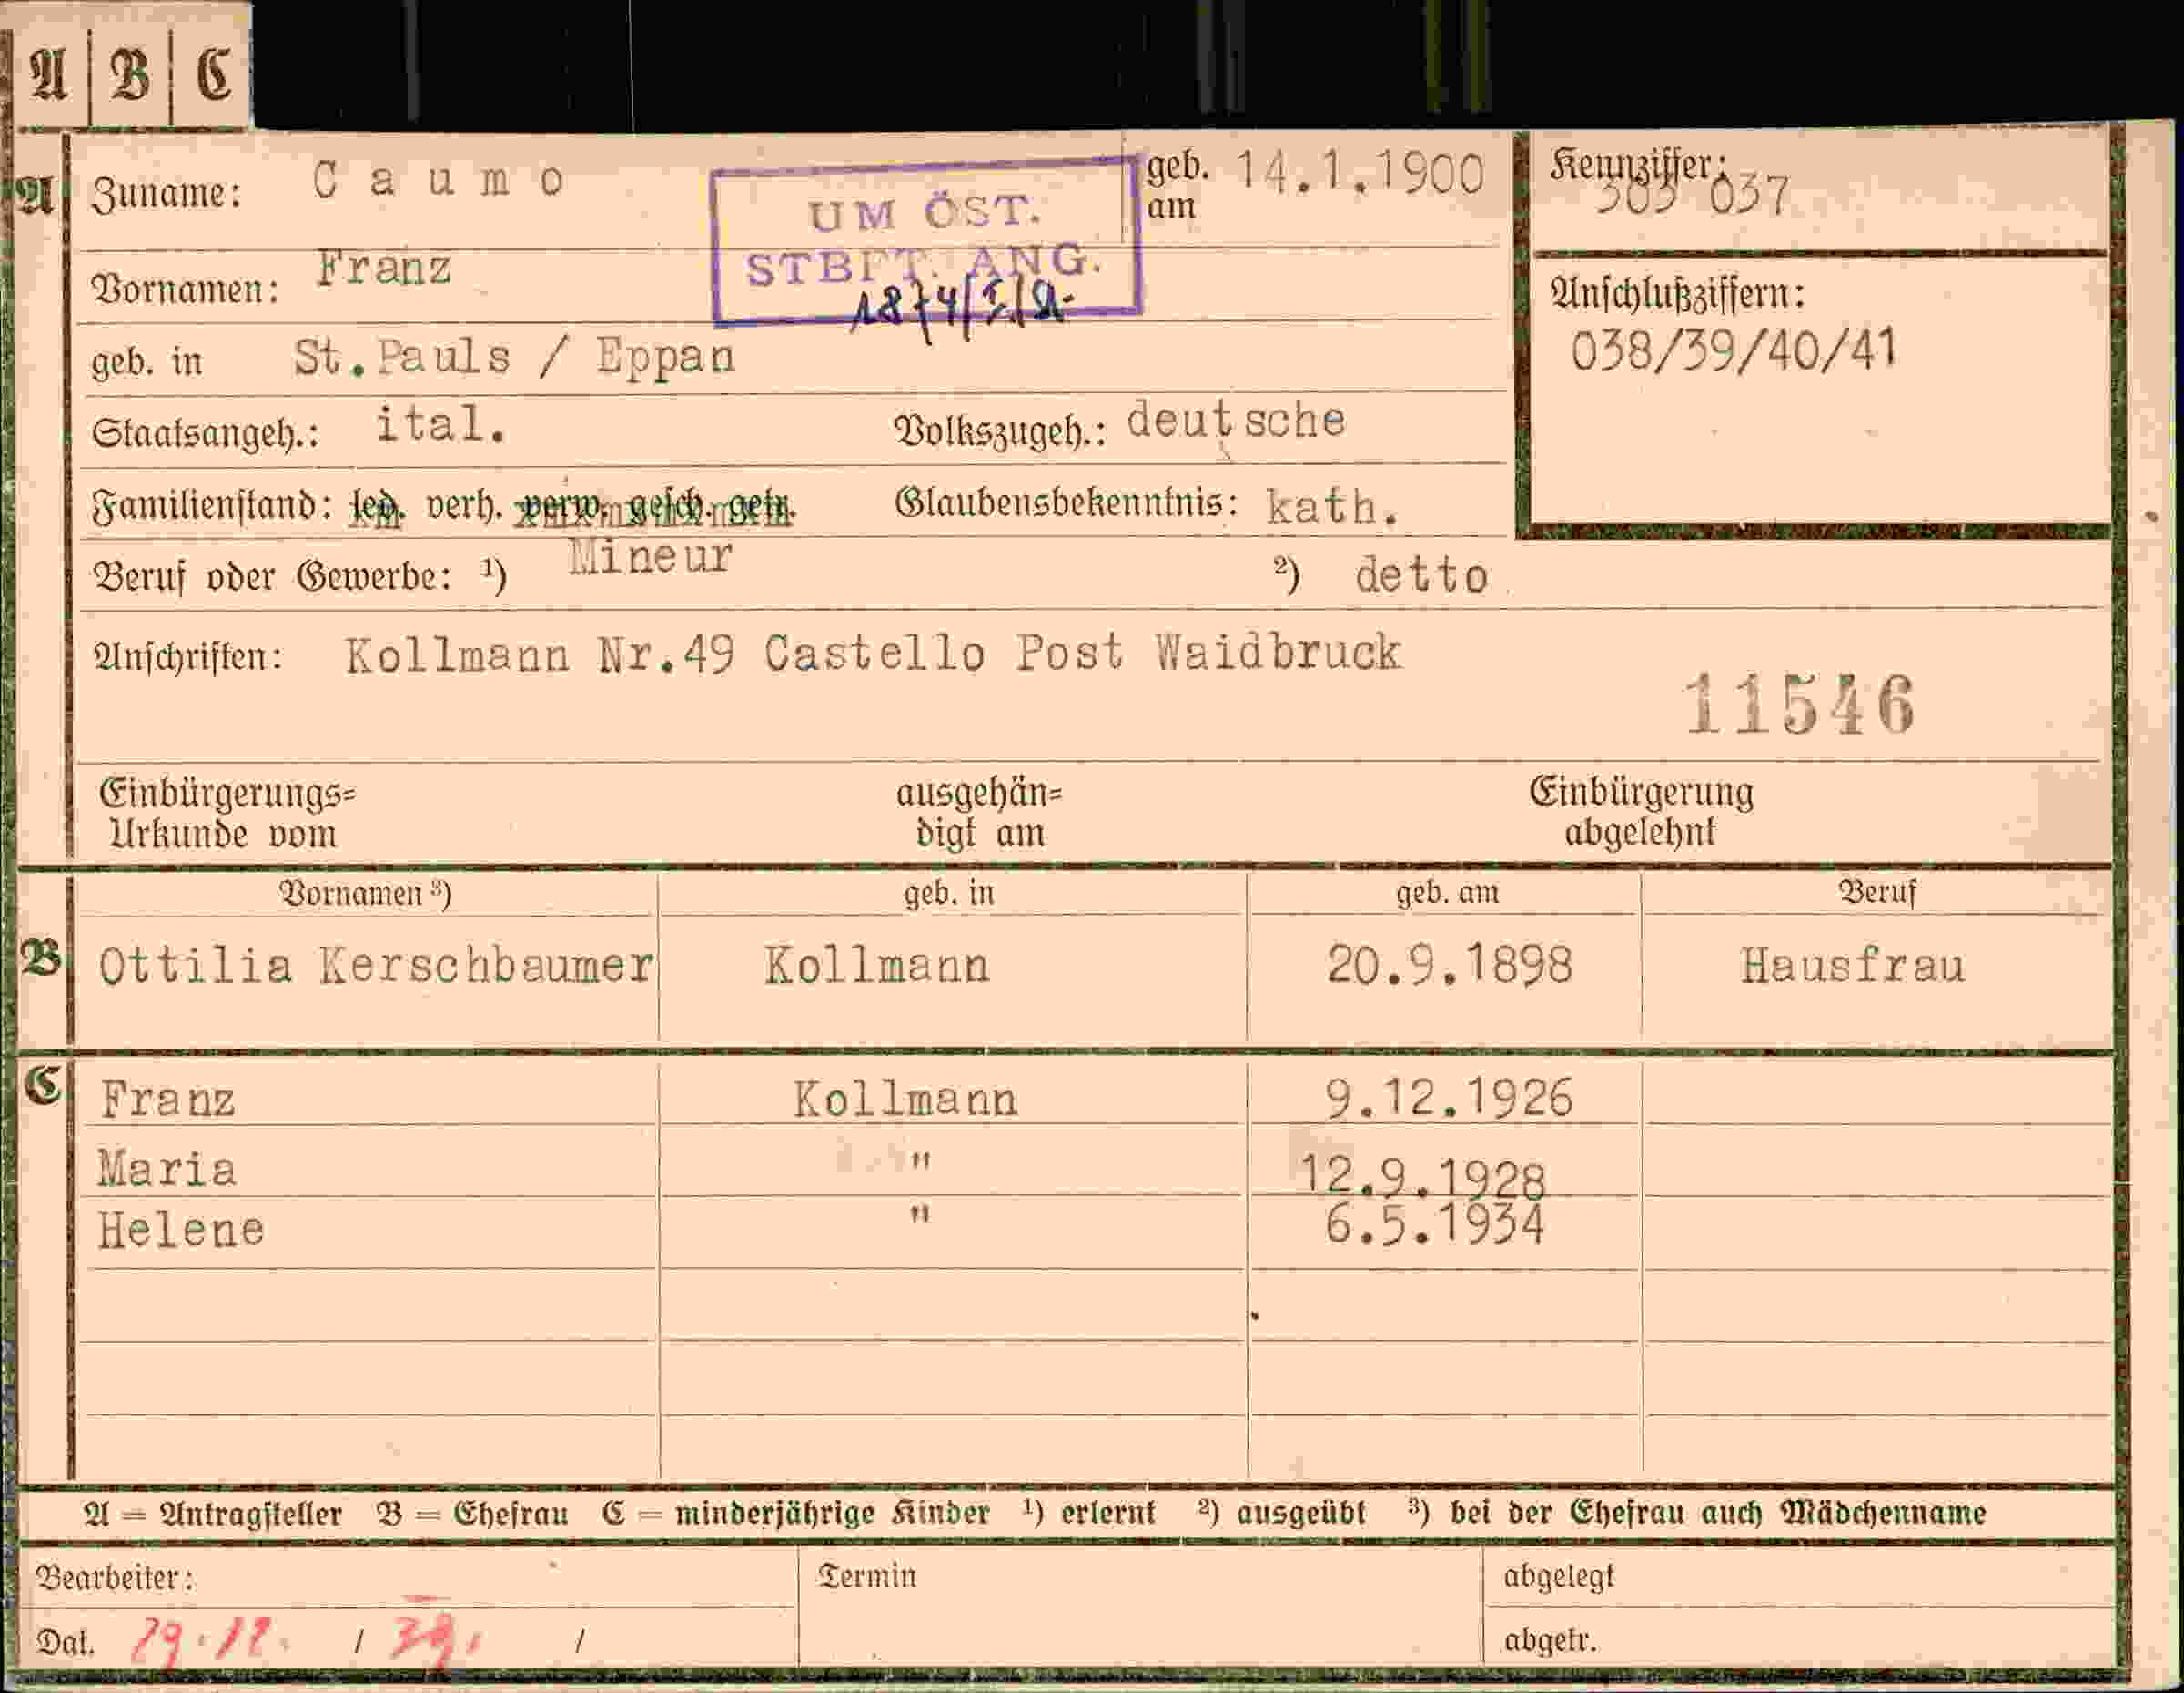 A B C
A Zuname: Caumo geb. am 14.1.1900 Kennziffer: 303 037
UM ÖST.
STBFT. ANG.
Vornamen: Franz
Anschlußziffern:
038/39/40/41
geb. in St.Pauls / Eppan
Staatsangeh.: ital. Volkszugeh.: deutsche
Familienstand: led. verh. verw. gesch. getr. Glaubensbekenntnis: kath.
Beruf oder Gewerbe: ¹) Mineur ²) detto
Anschriften: Kollmann Nr.49 Castello Post Waidbruck
11546
Einbürgerungs= ausgehän= Einbürgerung
Urkunde vom digt am abgelehnt
Vornamen ³) geb. in geb. am Beruf
B Ottilia Kerschbaumer Kollmann 20.9.1898 Hausfrau
C Franz Kollmann 9.12.1926
Maria " 12.9.1928
Helene " 6.5.1934
A = Antragsteller B = Ehefrau C = minderjährige Kinder ¹) erlernt ²) ausgeübt ³) bei der Ehefrau auch Mädchenname
Bearbeiter: Termin abgelegt
Dat. 29.12. / 39. / abgetr.